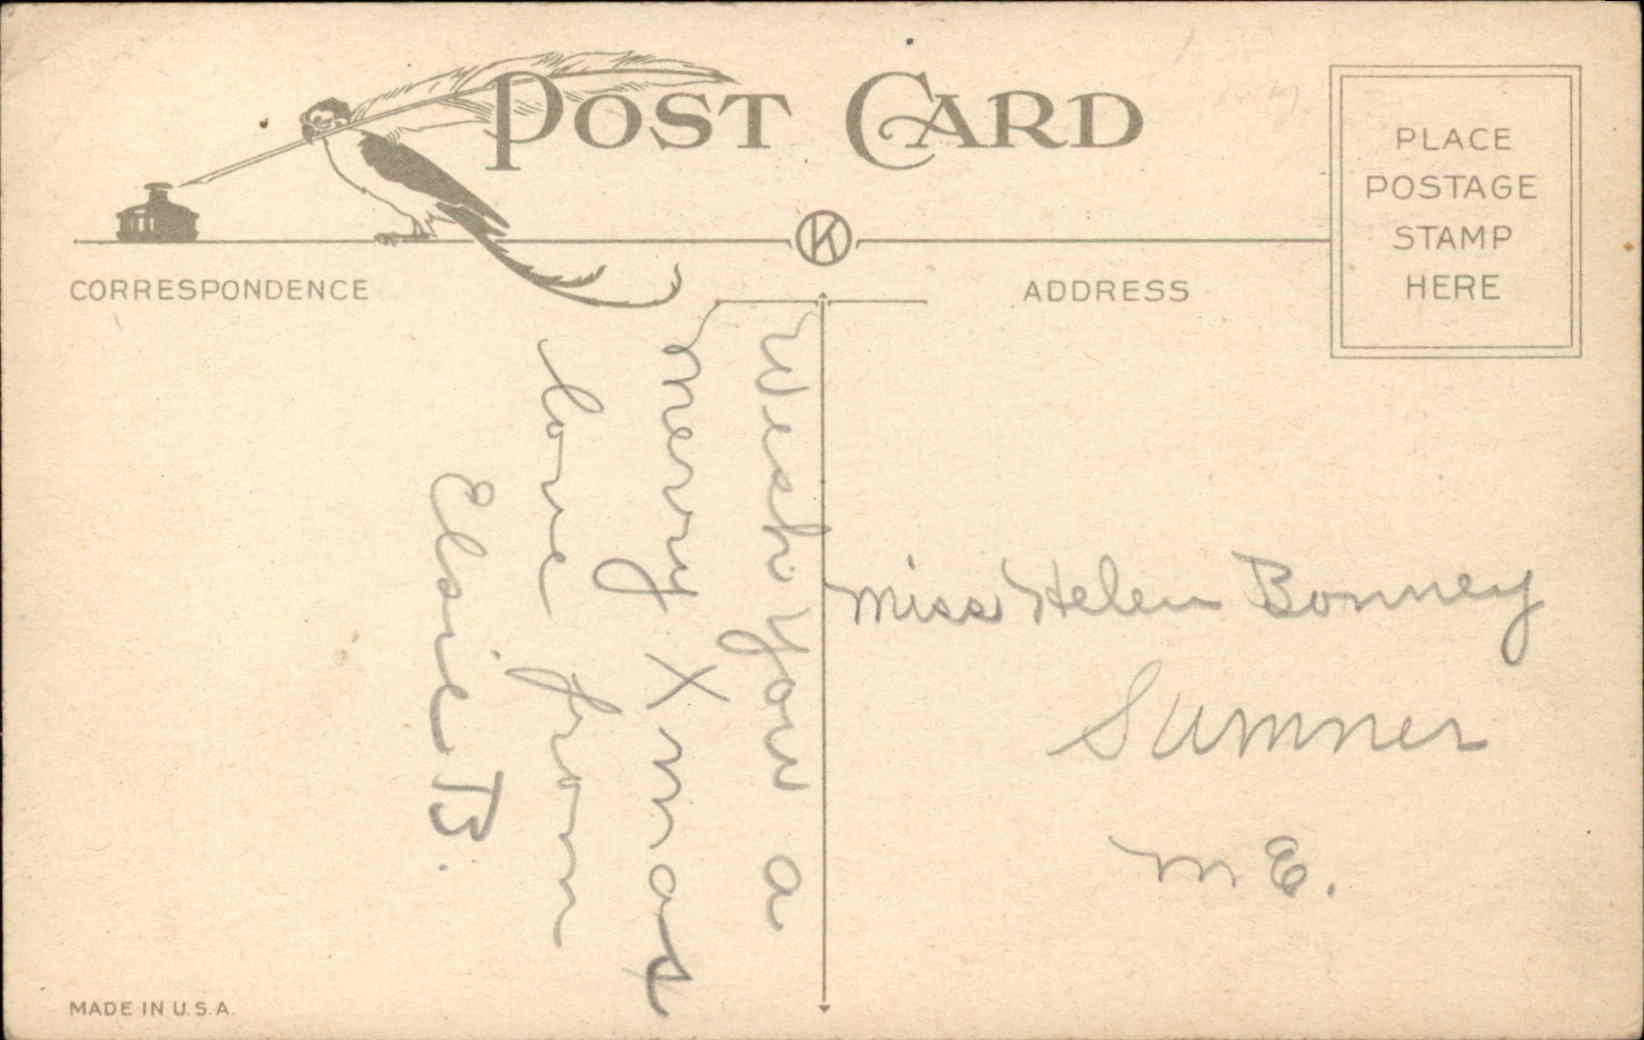 POST CARD
PLACE
POSTAGE
STAMP
HERE
K
CORRESPONDENCE
ADDRESS
Wish you a
merry Xmas
love from
Elsie B.
Miss Helen Bonney
Sumner
ME.
MADE IN U.S.A.